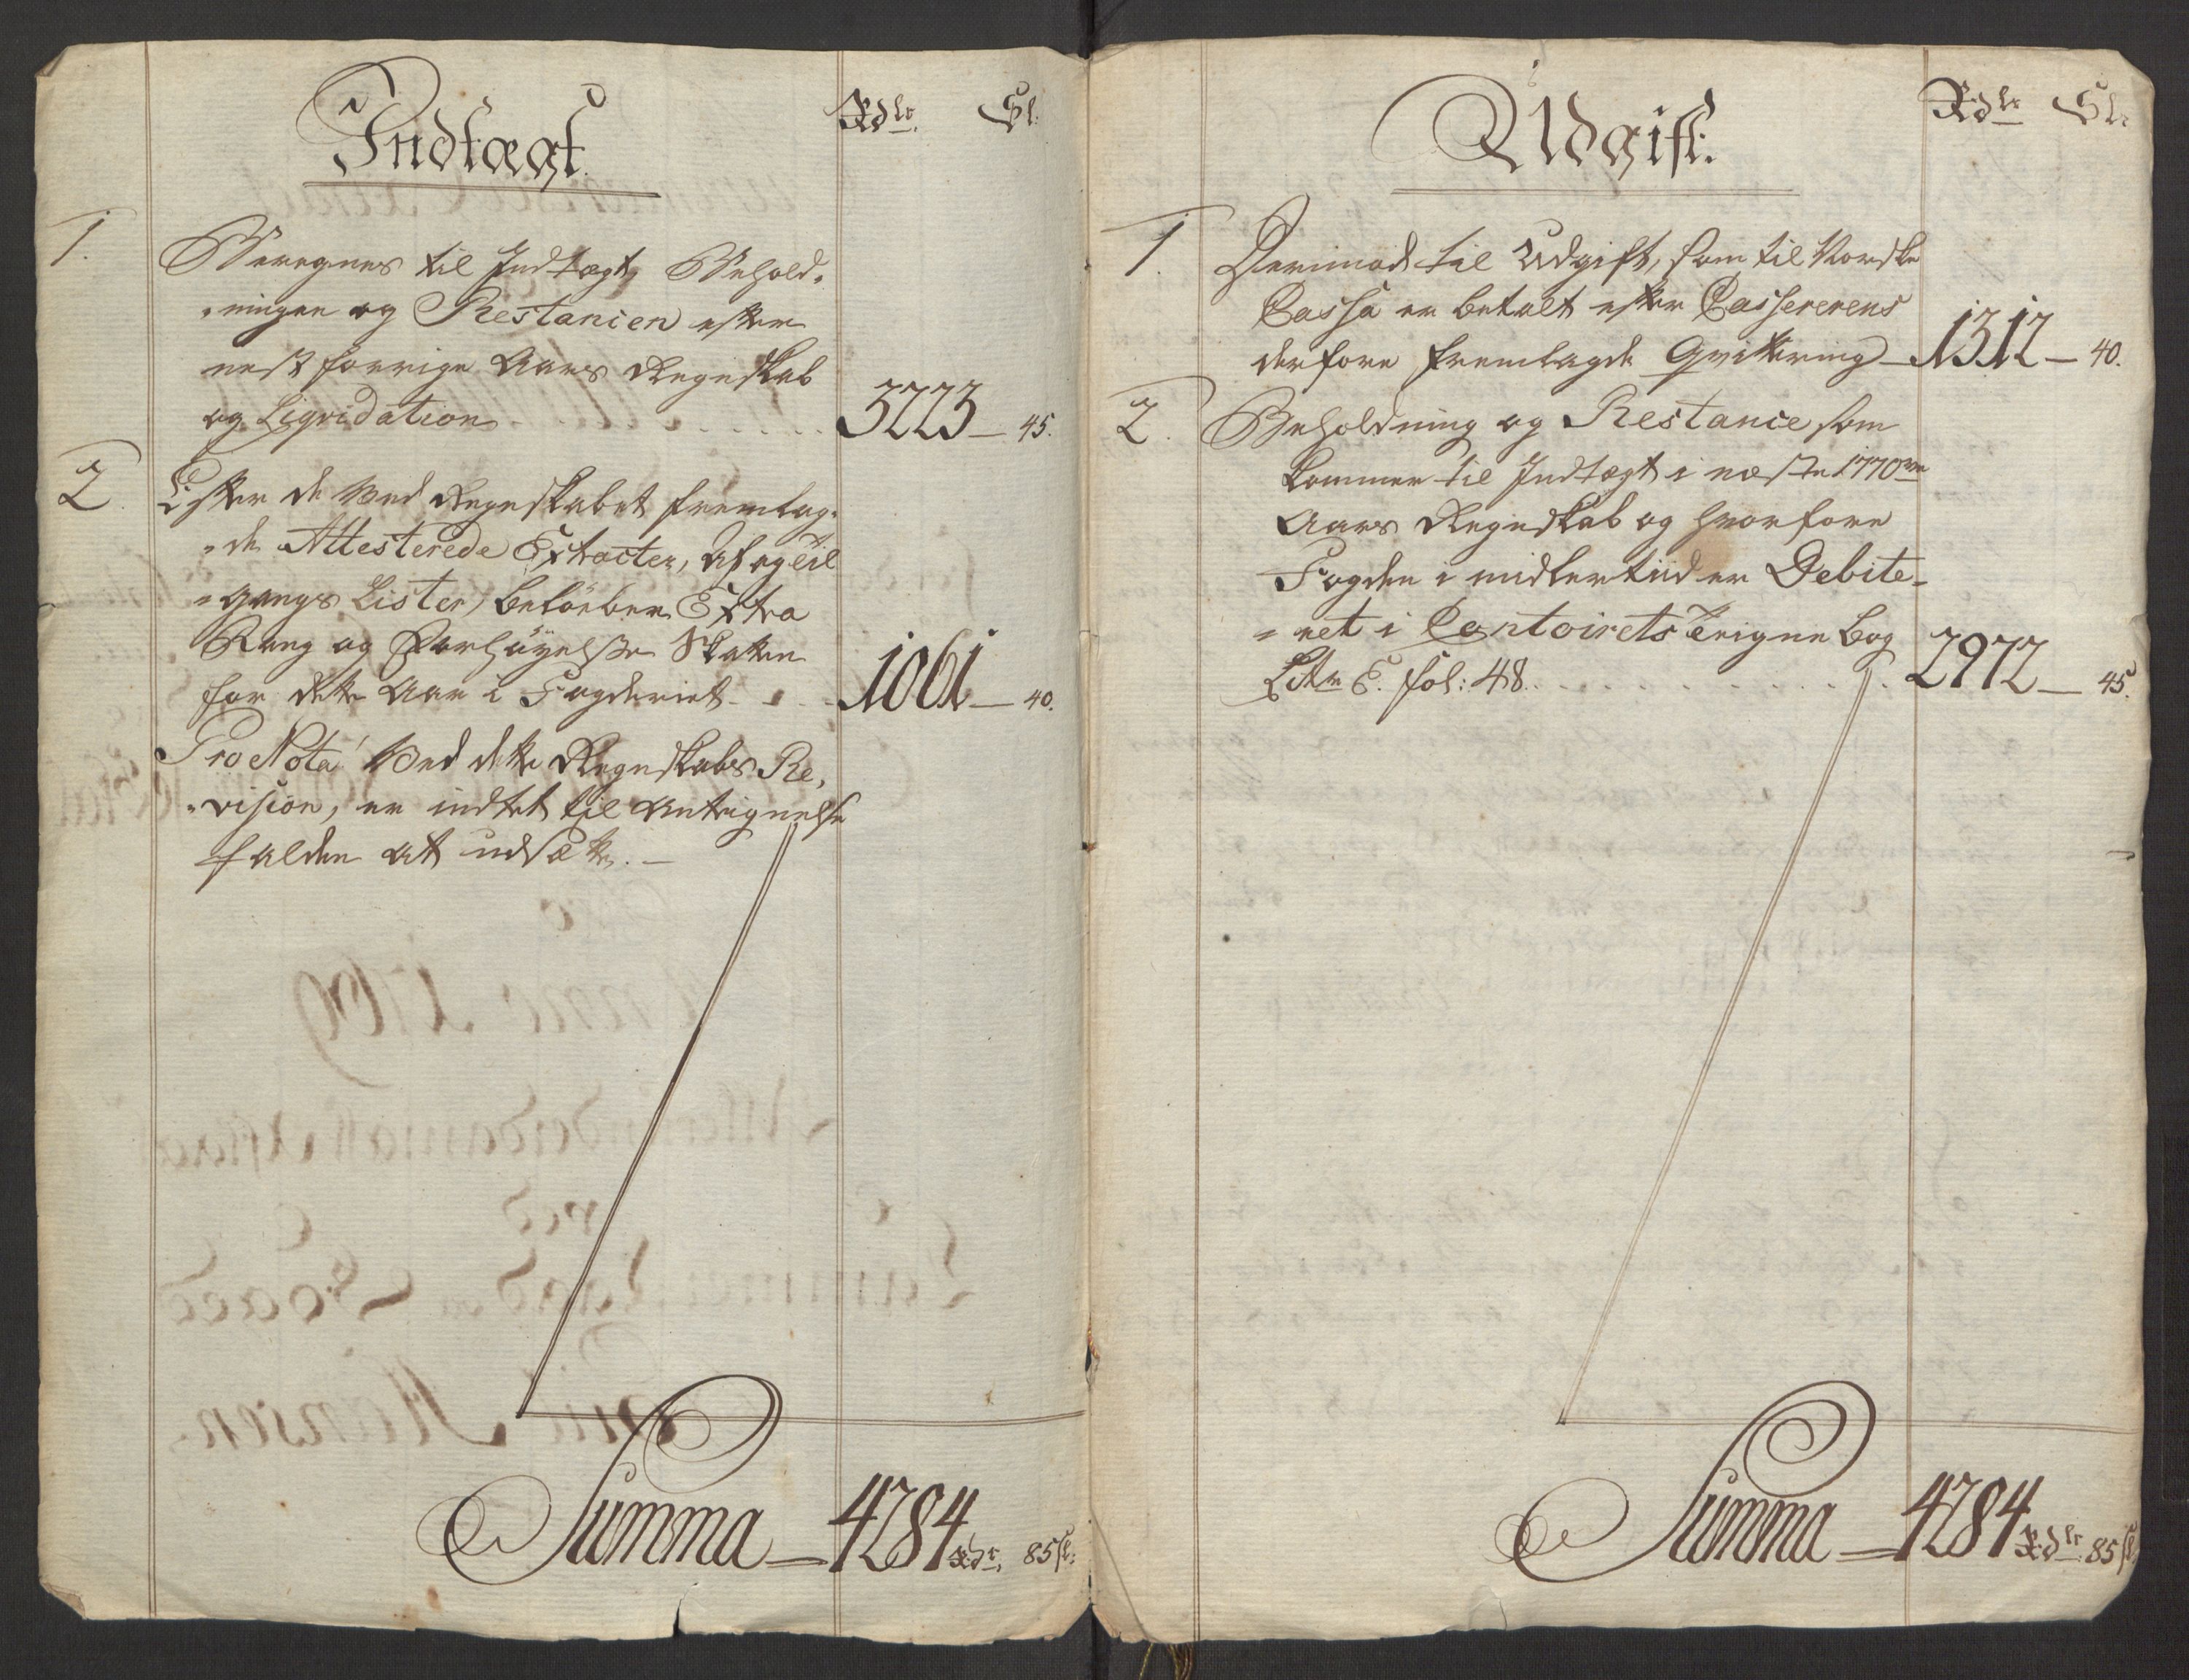 Indtægt.
Rdlr. Sl:
1. Beregnes til Indtægt Behold-
ningen og Restancen efter
nest forrige Aars Regnskab
og Liqvidation 3223 — 45.
2 Efter de ved Regnskabet fremlag-
de Attesterede Extracter, Af og til
gangs Lister, beløber Extra
Rang og Forhøyelse Skatten
for dette Aar i Fogderiet 1061 — 40.
Pro Nota Ved dette Regnskabs Re-
vision, er indtet til Antegnelse
falden at udsætte. —
Summa — 4284 Rdr. 85 sl:
Udgift.
Rdlr Sl:
1. Derimod til Udgift, som til Norske
Cassa er betalt efter Cassererens
derfore fremlagde Qvittering — 1312 — 40.
2. Beholdning og Restance som
kommer til Indtægt i næste 1770de
Aars Regnskab og hvorfore
Fogden i midlertiid er Debite-
ret i Contoirets Erigne bog
Littr E. fol: 48. 2972 — 45.
Summa — 4284 Rdlr. 85 sl: